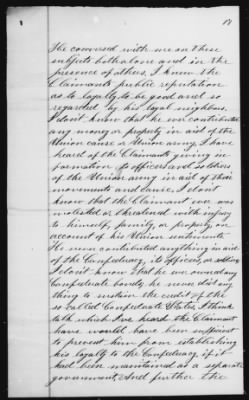 12
He conversed with me on these
subjects both alone and in the
presence of others. I knew the
Claimants public reputation
as to loyalty, to be good and so
regarded by his loyal neighbors.
I don't know that he ever contributed
any money or property in aid of the
Union cause or Union army. I have
heard of the Claimants giving in
formation to officers and soldiers
of the Union army in aid of their
movements and cause. I don't
know that the Claimant ever was
molested or threatened with injury
to himself, family, or property, on
account of his Union sentiments.
He never contributed anything in aid
of the Confederacy, its officers, or soldiers
I don't know that he ever owned any
Confederate bonds, he never did any
thing to sustain the credit of the
so called Confederate States. I think
with which I've heard the Claimant
have would have been sufficient
to prevent him from establishing
his loyalty to the Confederacy if it
had been maintained as a separate
government, And further the